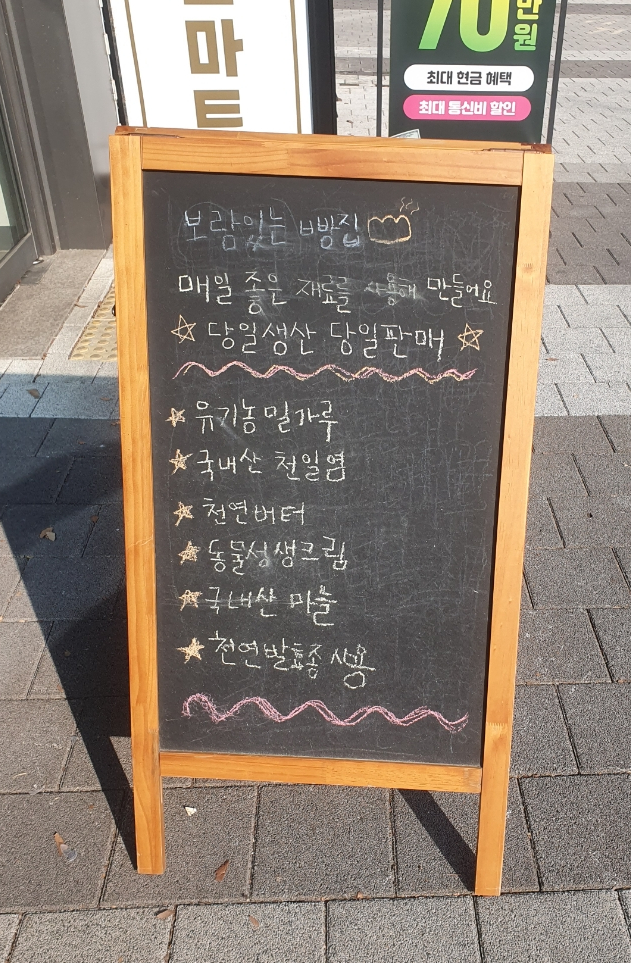 마트
70만원
최대 현금 혜택
최대 통신비 할인
보람있는 빵집
매일 좋은 재료를 사용해 만들어요
당일생산 당일판매
유기농밀가루
국내산 천일염
천연버터
동물성생크림
국내산 마늘
천연발효종 사용